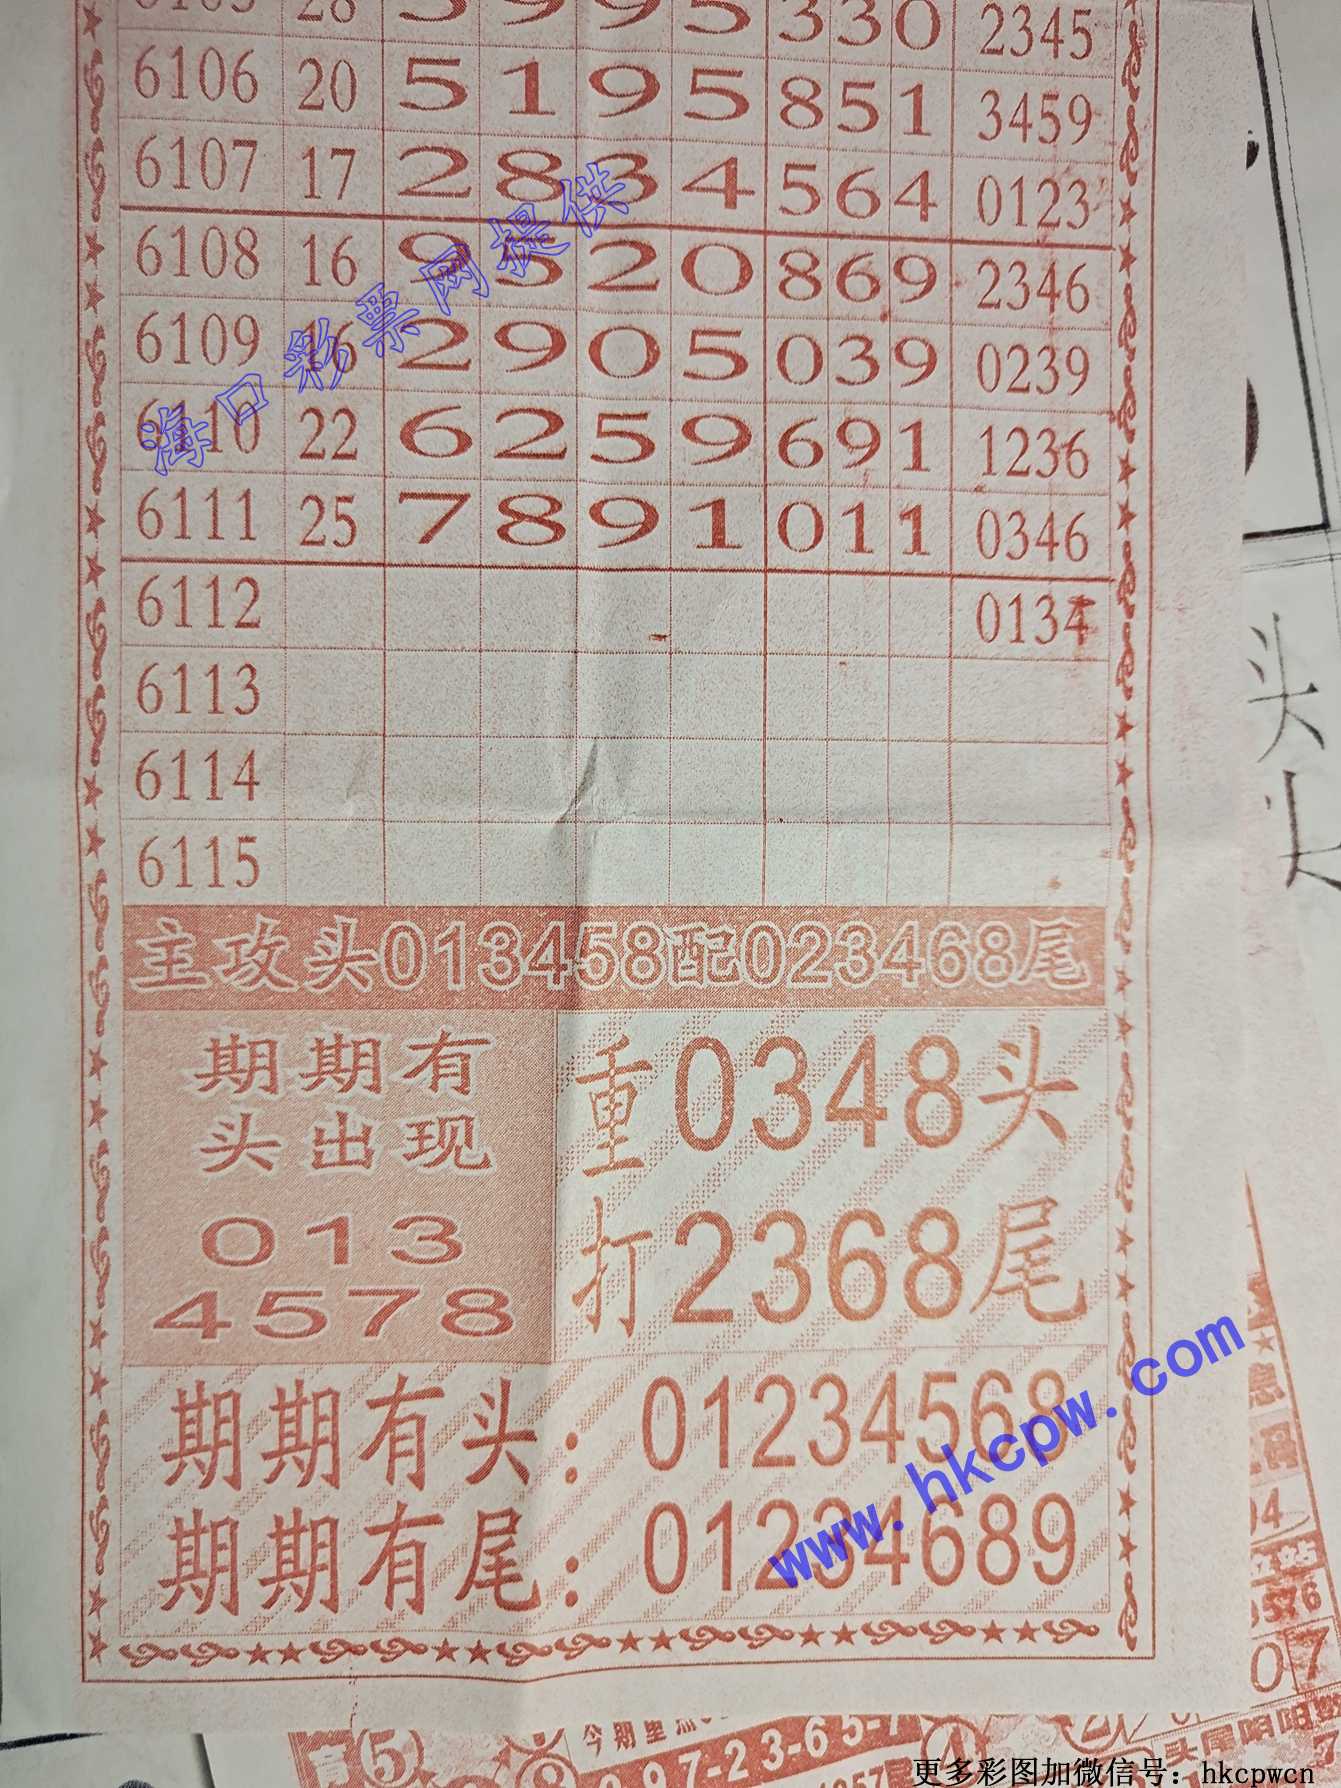 28 5 9 9 5 3 3 0 2345
6106 20 5 1 9 5 8 5 1 3459
6107 17 2 8 3 4 5 6 4 0123
6108 16 9 5 2 0 8 6 9 2346
6109 16 2 9 0 5 0 3 9 0239
6110 22 6 2 5 9 6 9 1 1236
6111 25 7 8 9 1 0 1 1 0346
6112 0134
6113
6114
6115
海口彩票网提供
主攻头013458配023468尾
期期有
头出现
013
4578
重0348头
打2368尾
期期有头：01234568
期期有尾：01234689
www.hkcpw.com
头
5
今期
97-23-65-7
4
头尾阴阳
576
07
更多彩图加微信号：hkcpwcn